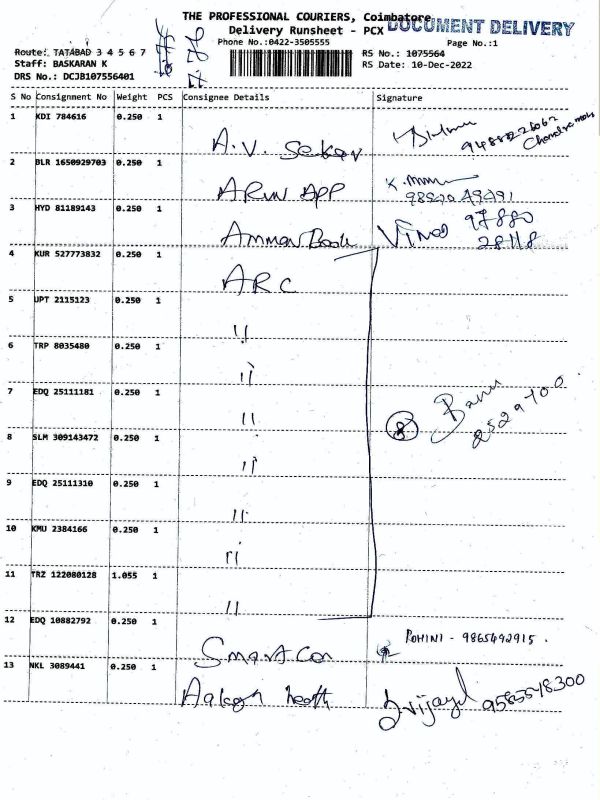 THE PROFESSIONAL COURIERS, Coimbatore
DOCUMENT DELIVERY
Delivery Runsheet - PCX
Phone No.:0422-3505555
Page No.:1
Route: TATABAD 3 4 5 6 7
RS No.: 1075564
Staff: BASKARAN K
RS Date: 10-Dec-2022
DRS No.: DCJB107556401
S No Consignment No Weight PCS Consignee Details Signature
1 KDI 784616 0.250 1 A.V. Sekar
2 BLR 1650929703 0.250 1 ARUN APP
3 HYD 81189143 0.250 1 Amman Book Vinoo 97880
28118
4 KUR 527773832 0.250 1 ARC
5 UPT 2115123 0.250 1 "
6 TRP 8035480 0.250 1 "
7 EDQ 25111181 0.250 1 "
8 Banu
2529700
8 SLM 309143472 0.250 1 "
9 EDQ 25111310 0.250 1 "
10 KMU 2384166 0.250 1 "
11 TRZ 122080128 1.055 1 "
12 EDQ 10882792 0.250 1 Smart Con ROHINI - 9865492915.
13 NKL 3089441 0.250 1 health 9585548300